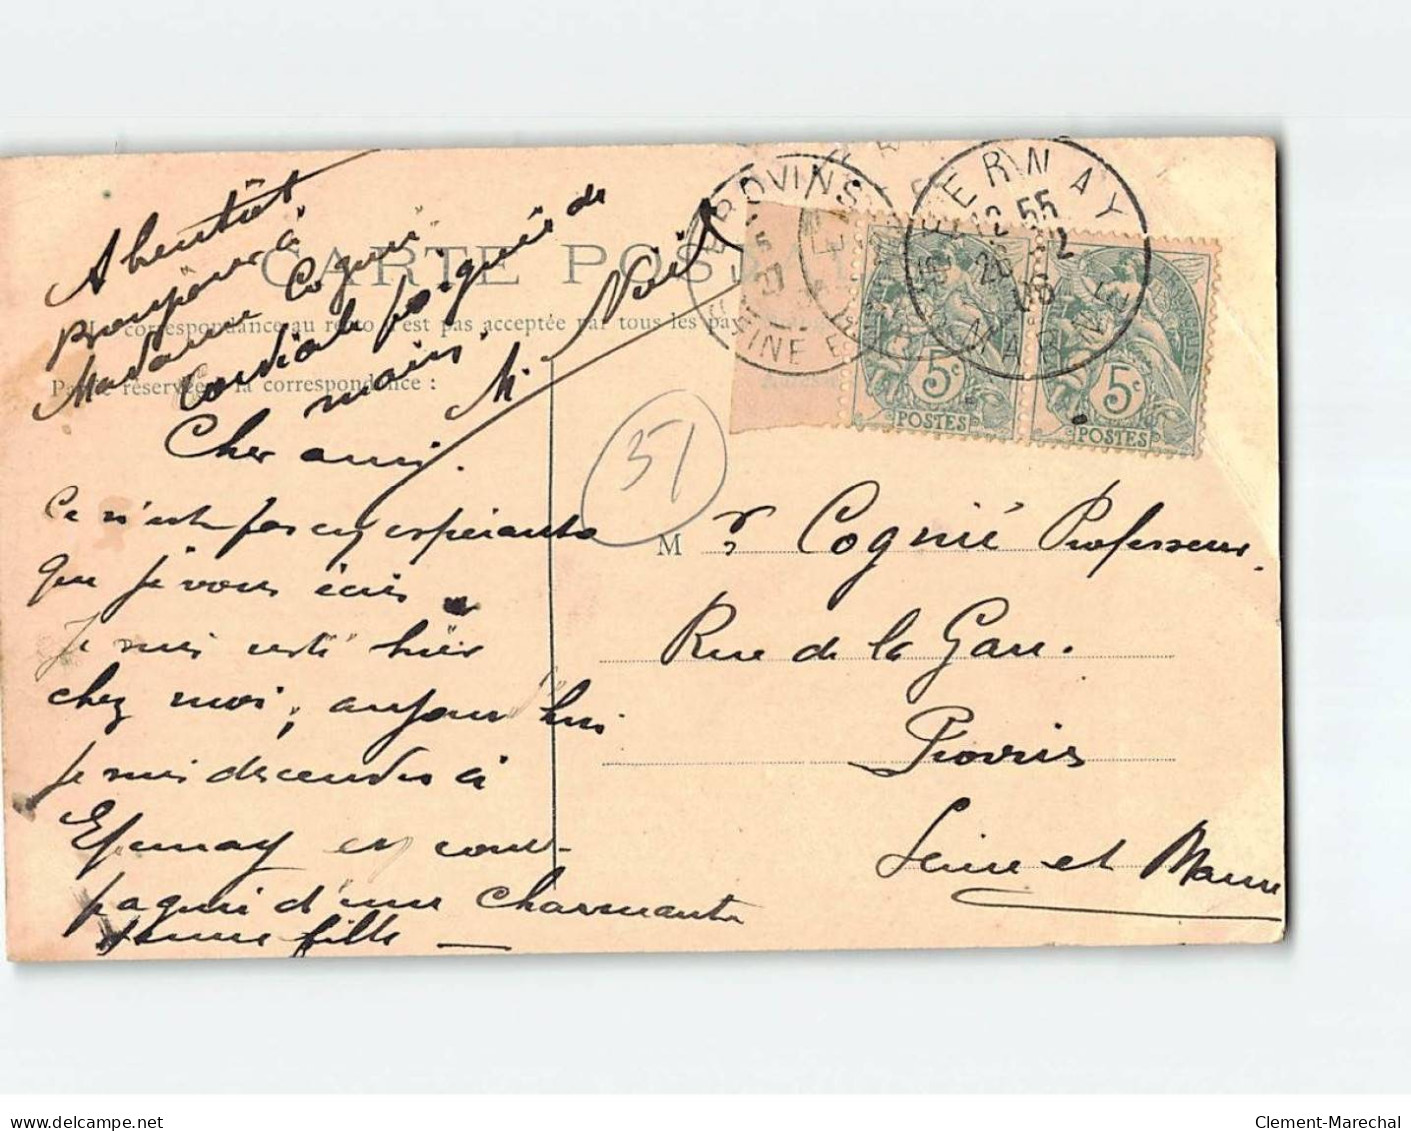 A bientôt
Bonjour à
Madame Cognié
Cordiale poignée de
mains.
M. Noël
CARTE POSTALE
La correspondance au recto n'est pas acceptée par tous les pays
Partie réservée à la correspondance :
Adresse
Cher ami.
Ce n'est pas en espéranto
que je vous écris.
Je suis resté hier
chez moi, aujourd'hui
je suis descendu à
Epernay en com-
pagnie d'une charmante
jeune fille —
PROVINS
SEINE ET
EPERNAY
12 55
26 12
06
MARNE
5c
POSTES
5c
POSTES
51
M r Cognié Professeur
Rue de la Gare.
Provins
Seine et Marne
Clement-Marechal
delcampe.net